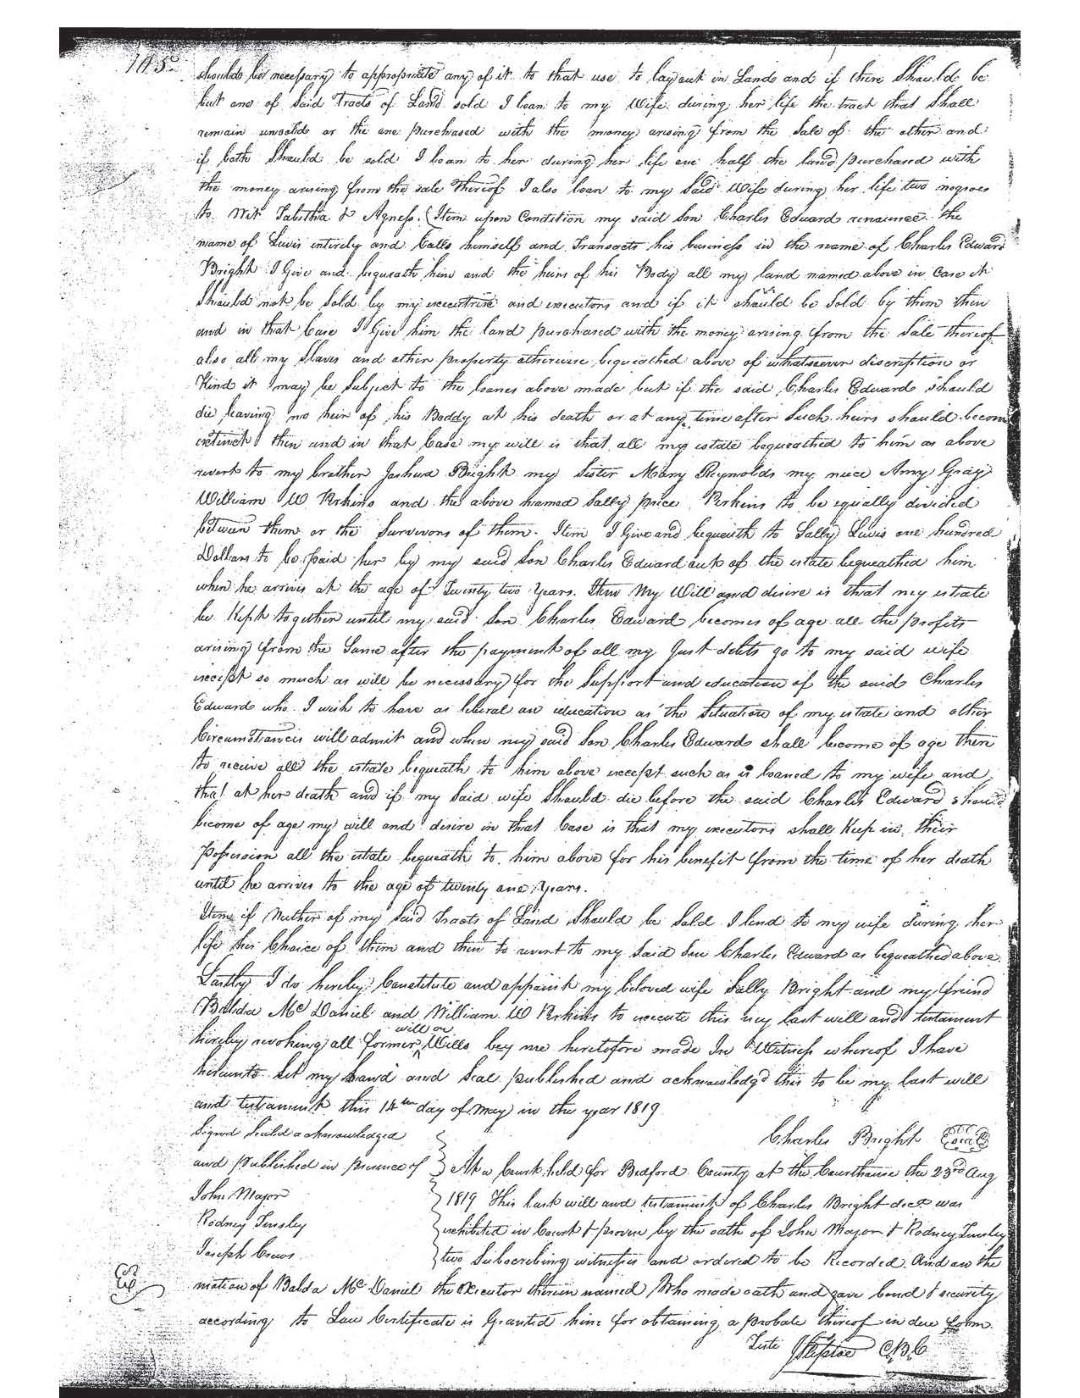 185
should be necessary to appropriate any of it to that use to lay out in Lands and if there Should be
but one of Said Tracts of Land sold I loan to my Wife during her life the tract that Shall
remain unsold or the one purchased with the money arising from the Sale of the other and
if both Should be sold I loan to her during her life one half the land purchased with
the money arising from the sale thereof I also loan to my Said Wife during her life two negroes
to Wit Tabitha & Agness. (Item upon Condition my said son Charles Edward renounce the
name of Lewis intirely and Calls himself and Transacts his business in the name of Charles Edward
Bright I Give and bequeath him and the heirs of his Body all my land named above in case it
Should not be Sold by my executrix and executors and if it should be Sold by them then
and in that Case I Give him the land purchased with the money arising from the Sale thereof
also all my Slaves and other property otherwise bequeathed above of whatsoever discription or
Kind it may be Subject to the loanes above made but if the said Charles Edward should
die leaving no heir of his Boddy at his death or at any time after Such heirs should becom
extinct then and in that Case my will is that all my estate bequeathed to him as above
revert to my brother Joshua Bright my Sister Mary Reynolds my niece Amy Gray
William W Perkins and the above named Sally Price Perkins to be equally divided
between them or the Survivors of them. Item I Give and bequeath to Sally Lewis one hundred
Dollars to be paid her by my said Son Charles Edward out of the estate bequeathed him
when he arrives at the age of Twenty two Years. Item My Will and desire is that my estate
be Kept together until my said Son Charles Edward becomes of age all the Profits
arising from the Same after the payment of all my Just debts go to my said wife
except so much as will be necessary for the Support and education of the said Charles
Edward who I wish to have as liberal an education as the Situation of my estate and other
Circumstances will admit and when my said Son Charles Edward shall become of age then
to receive all the estate bequeath to him above except such as is loaned to my wife and
that at her death and if my Said wife Should die before the said Charles Edward should
become of age my will and desire in that Case is that my executors shall Keep in their
Possession all the estate bequeath to him above for his benefit from the time of her death
until he arrives to the age of twenty one Years.
Item if Neither of my Said Tracts of Land Should be Sold I lend to my wife During her
life her Choice of them and then to revert to my Said Son Charles Edward as bequeathed above
Lastly I do hereby Constitute and appoint my beloved wife Sally Bright and my freind
Balda Mc Daniel and William W Perkins to execute this my last will and testament
hereby revoking all former will or Wills by me heretofore made In Witness whereof I have
hereunto Set my hand and Seal published and acknowledgd this to be my last will
and testament this 14th day of May in the year 1819
Charles Bright Seal
Signed Seald acknowledged
and published in presence of
John Major
Rodney Tinsley
Joseph Crews
At a Court held for Bedford County at the Courthouse the 23rd Aug
1819 This last will and testament of Charles Bright decd was
exhibited in Court & proven by the oath of John Major & Rodney Tinsley
two Subscribing witnesses and ordered to be Recorded And on the
motion of Balda Mc Daniel the Executor therein named Who made oath and gave bond & security
according to Law Certificate is Granted him for obtaining a probate thereof in due form
Teste C B C